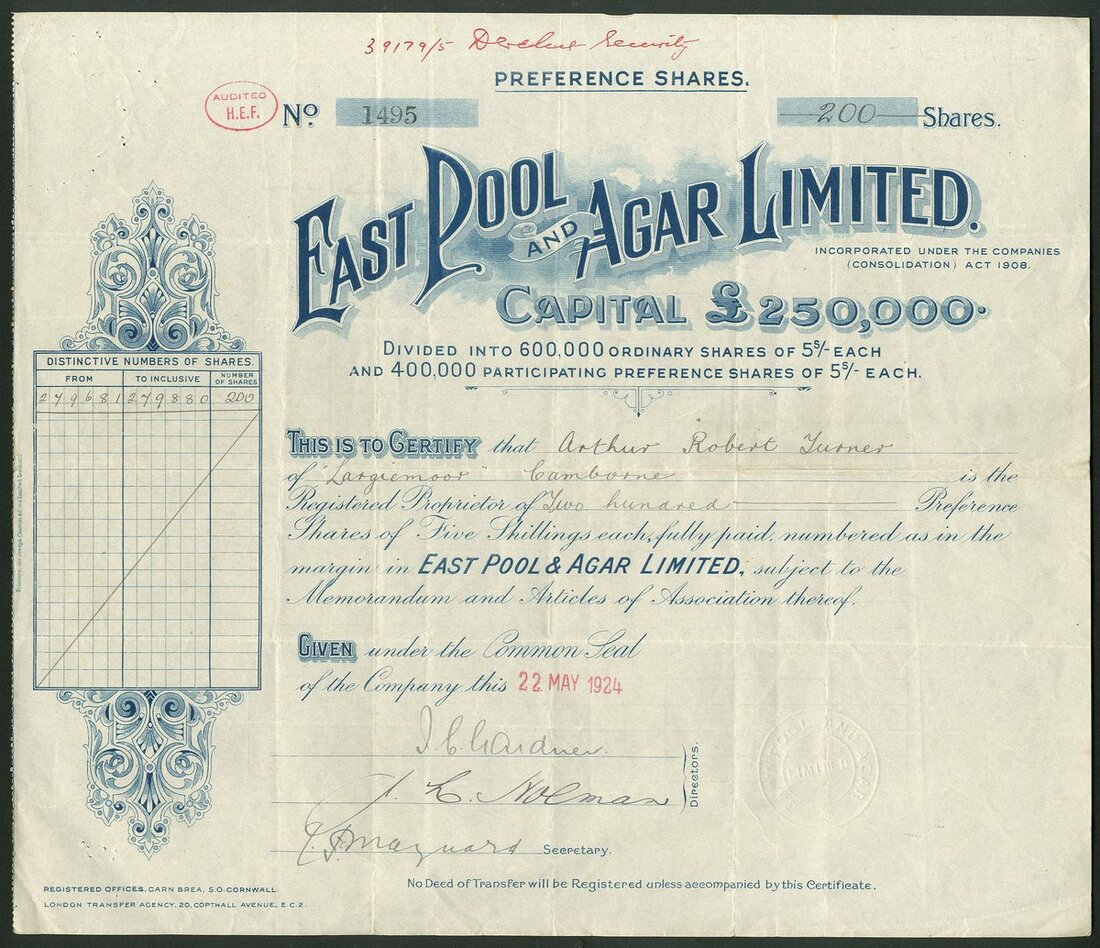 39179/5 Security
PREFERENCE SHARES.
AUDITED
H.E.F.
No. 1495
200 Shares.
EAST POOL AND AGAR LIMITED.
INCORPORATED UNDER THE COMPANIES
(CONSOLIDATION) ACT 1908.
CAPITAL £250,000.
DIVIDED INTO 600,000 ORDINARY SHARES OF 5s/- EACH
AND 400,000 PARTICIPATING PREFERENCE SHARES OF 5s/- EACH.
DISTINCTIVE NUMBERS OF SHARES.
FROM TO INCLUSIVE NUMBER OF SHARES
279681 279880 200
THIS IS TO CERTIFY that Arthur Robert Turner
of "Largiemoor" Camborne is the
Registered Proprietor of Two hundred Preference
Shares of Five Shillings each, fully paid, numbered as in the
margin in EAST POOL & AGAR LIMITED, subject to the
Memorandum and Articles of Association thereof.
GIVEN under the Common Seal
of the Company this 22 MAY 1924
POOL AND AGAR
LIMITED
Directors.
Secretary.
No Deed of Transfer will be Registered unless accompanied by this Certificate.
REGISTERED OFFICES, CARN BREA, S.O. CORNWALL.
LONDON TRANSFER AGENCY, 20, COPTHALL AVENUE, E.C.2.